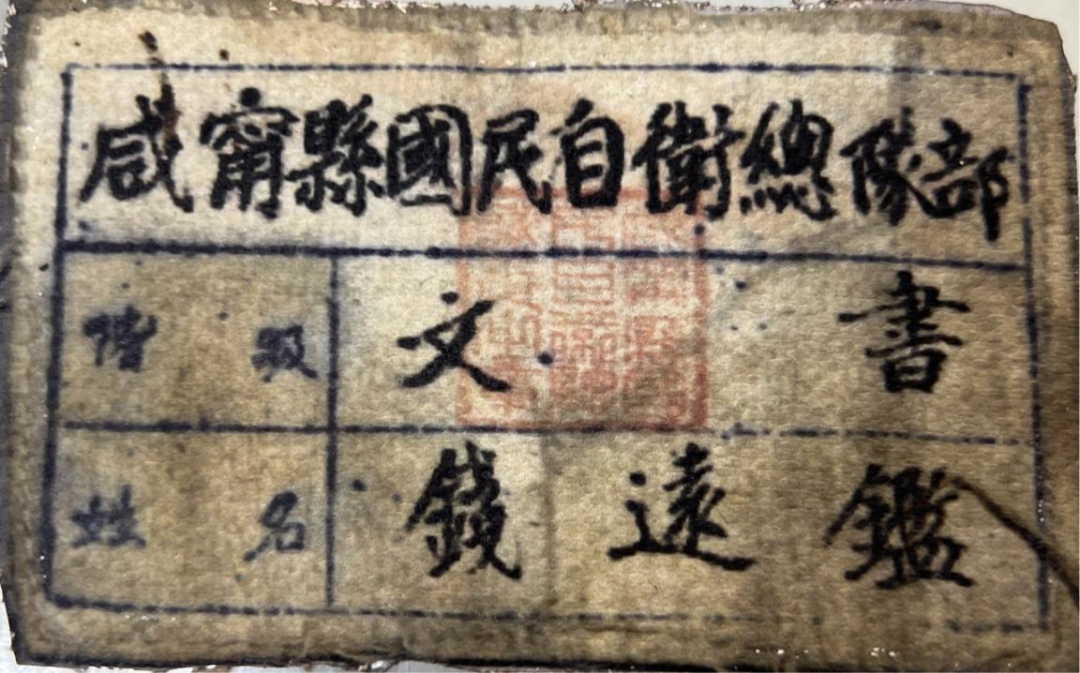 咸甯縣國民自衛總隊部
階級 文書
姓名 錢遠鑑